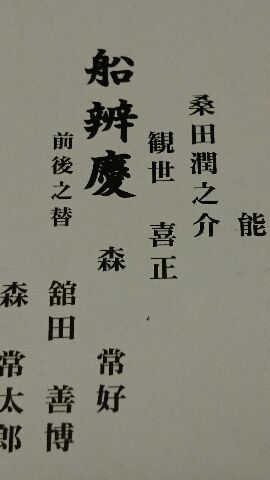 能
桑田潤之介
観世 喜正
船辨慶
森 常好
前後之替
舘田 善博
森 常太郎